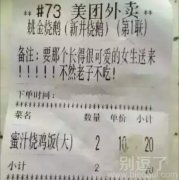 ** #73 美团外卖 **
姚金烧鹅（新井烧鹅）（第1联）
备注：要那个长得很可爱的女生送来
！！！！！不然老子不吃！
下单时间：
菜名 数量 单价 小计
蜜汁烧鸡饭(大) 2 10 20
小计 2 20
别逗了